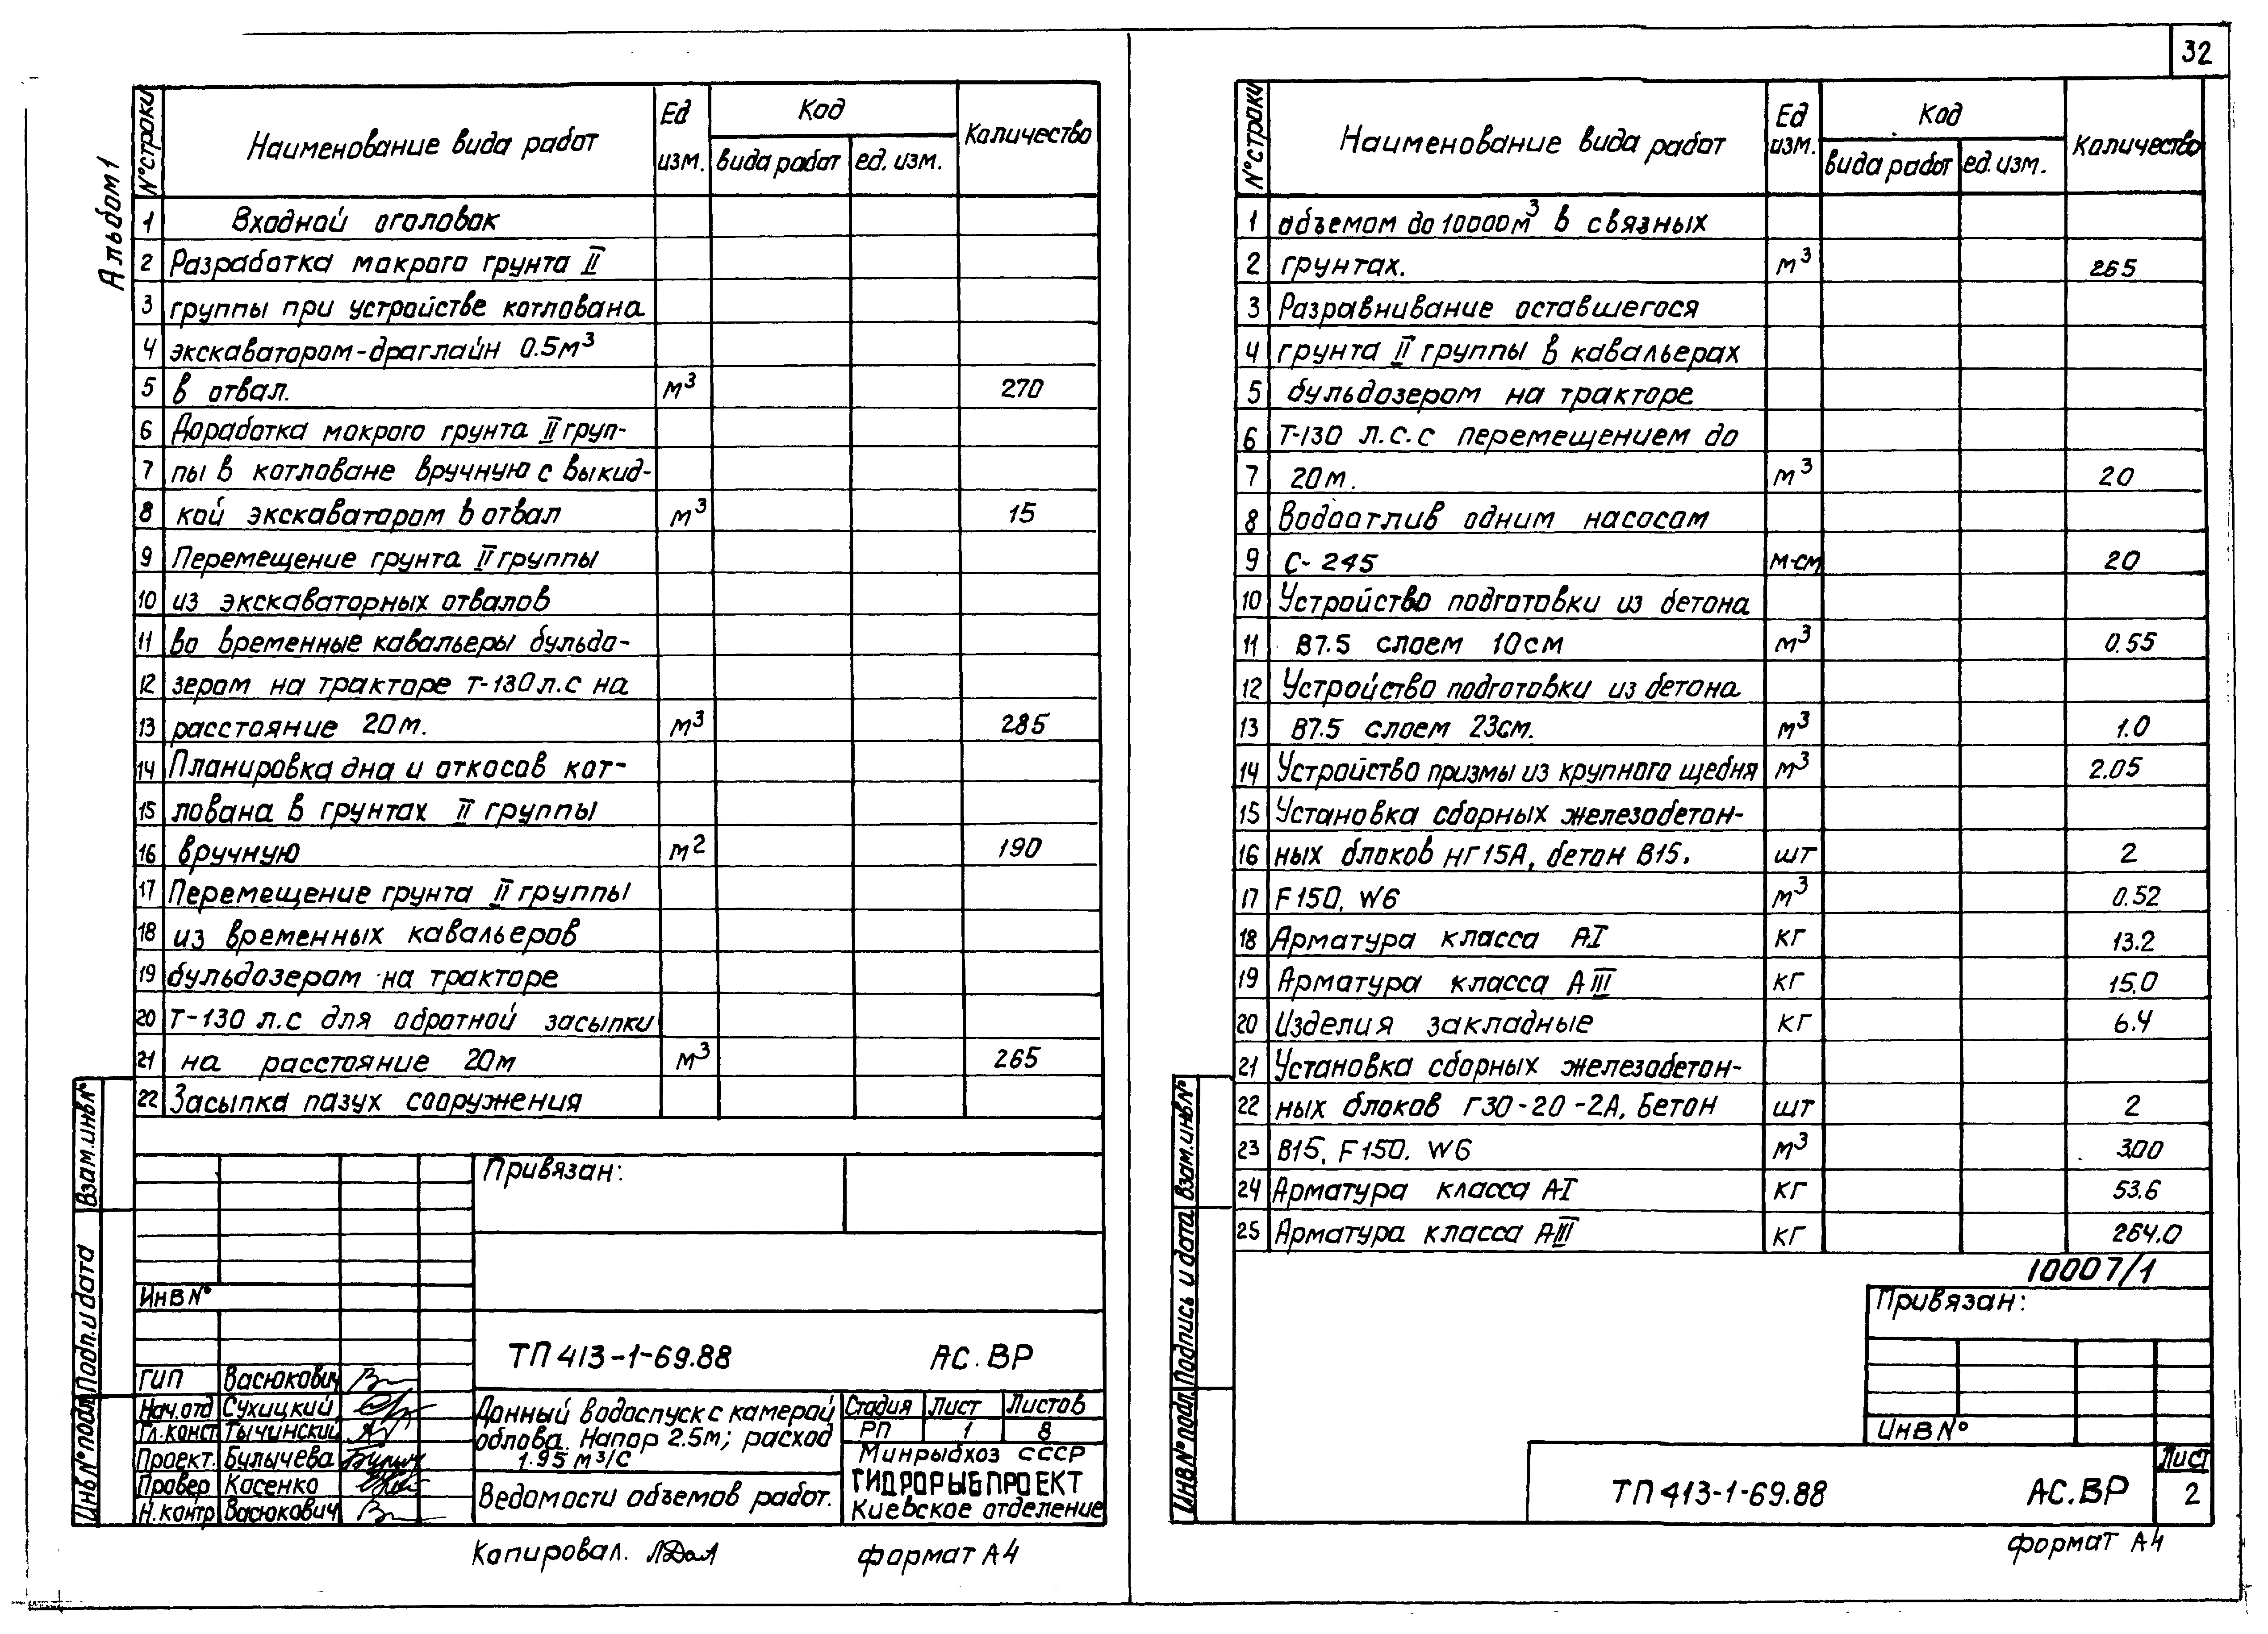 32
Альбом 1
№ строки | Наименование вида работ | Ед изм. | Код | Количество
вида работ | ед. изм.
1 Входной оголовок
2 Разработка мокрого грунта II
3 группы при устройстве котлована
4 экскаватором-драглайн 0.5м³
5 в отвал. м³ 270
6 Доработка мокрого грунта II груп-
7 пы в котловане вручную с выкид-
8 кой экскаватором в отвал м³ 15
9 Перемещение грунта II группы
10 из экскаваторных отвалов
11 во временные кавальеры бульдо-
12 зером на тракторе Т-130 л.с на
13 расстояние 20м. м³ 285
14 Планировка дна и откосов кот-
15 лована в грунтах II группы
16 вручную м² 190
17 Перемещение грунта II группы
18 из временных кавальеров
19 бульдозером на тракторе
20 Т-130 л.с для обратной засыпки
21 на расстояние 20м м³ 265
22 Засыпка пазух сооружения
Взам.инв№
Подп.и дата
Инв№подл.
Привязан:
Инв№
ТП 413-1-69.88 АС.ВР
ГИП Васюкович
Нач.отд Сухицкий
Гл.конст. Тычинский
Проект. Булычева
Провер Касенко
Н.контр Васюкович
Донный водоспуск с камерой
облова. Напор 2.5м; расход
1.95 м³/с
Ведомости объемов работ.
Стадия Лист Листов
РП 1 8
Минрыбхоз СССР
ГИДРОРЫБПРОЕКТ
Киевское отделение
Копировал.
формат А4
№ строки | Наименование вида работ | Ед изм. | Код | Количество
вида работ | ед. изм.
1 объемом до 10000м³ в связных
2 грунтах. м³ 265
3 Разравнивание оставшегося
4 грунта II группы в кавальерах
5 бульдозером на тракторе
6 Т-130 л.с. с перемещением до
7 20м. м³ 20
8 Водоотлив одним насосом
9 С-245 м-см 20
10 Устройство подготовки из бетона
11 В7.5 слоем 10см м³ 0.55
12 Устройство подготовки из бетона
13 В7.5 слоем 23см. м³ 1.0
14 Устройство призмы из крупного щебня м³ 2.05
15 Установка сборных железобетон-
16 ных блоков НГ15А, бетон В15. шт 2
17 F150, W6 м³ 0.52
18 Арматура класса АI кг 13.2
19 Арматура класса АIII кг 15.0
20 Изделия закладные кг 6.4
21 Установка сборных железобетон-
22 ных блоков Г30-20-2А. Бетон шт 2
23 В15, F150. W6 м³ 3.00
24 Арматура класса АI кг 53.6
25 Арматура класса АIII кг 264.0
10007/1
Взам.инв№
Подпись и дата
Инв№подл.
Привязан:
Инв№
ТП 413-1-69.88 АС.ВР
Лист
2
формат А4